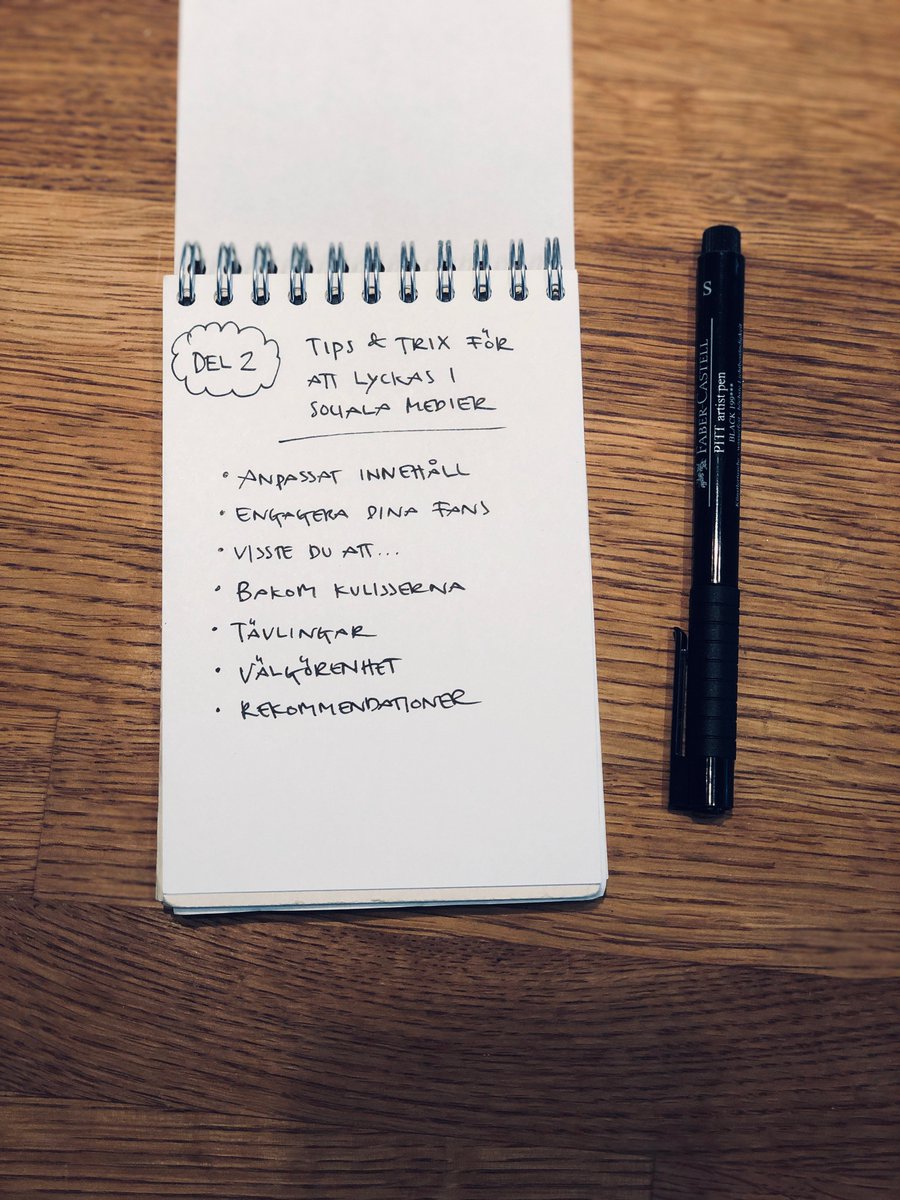 DEL 2
TIPS & TRIX FÖR
ATT LYCKAS I
SOCIALA MEDIER
• ANPASSAT INNEHÅLL
• ENGAGERA DINA FANS
• VISSTE DU ATT...
• BAKOM KULISSERNA
• TÄVLINGAR
• VÄLGÖRENHET
• REKOMMENDATIONER
S
FABER CASTELL
PITT artist pen
BLACK 199***